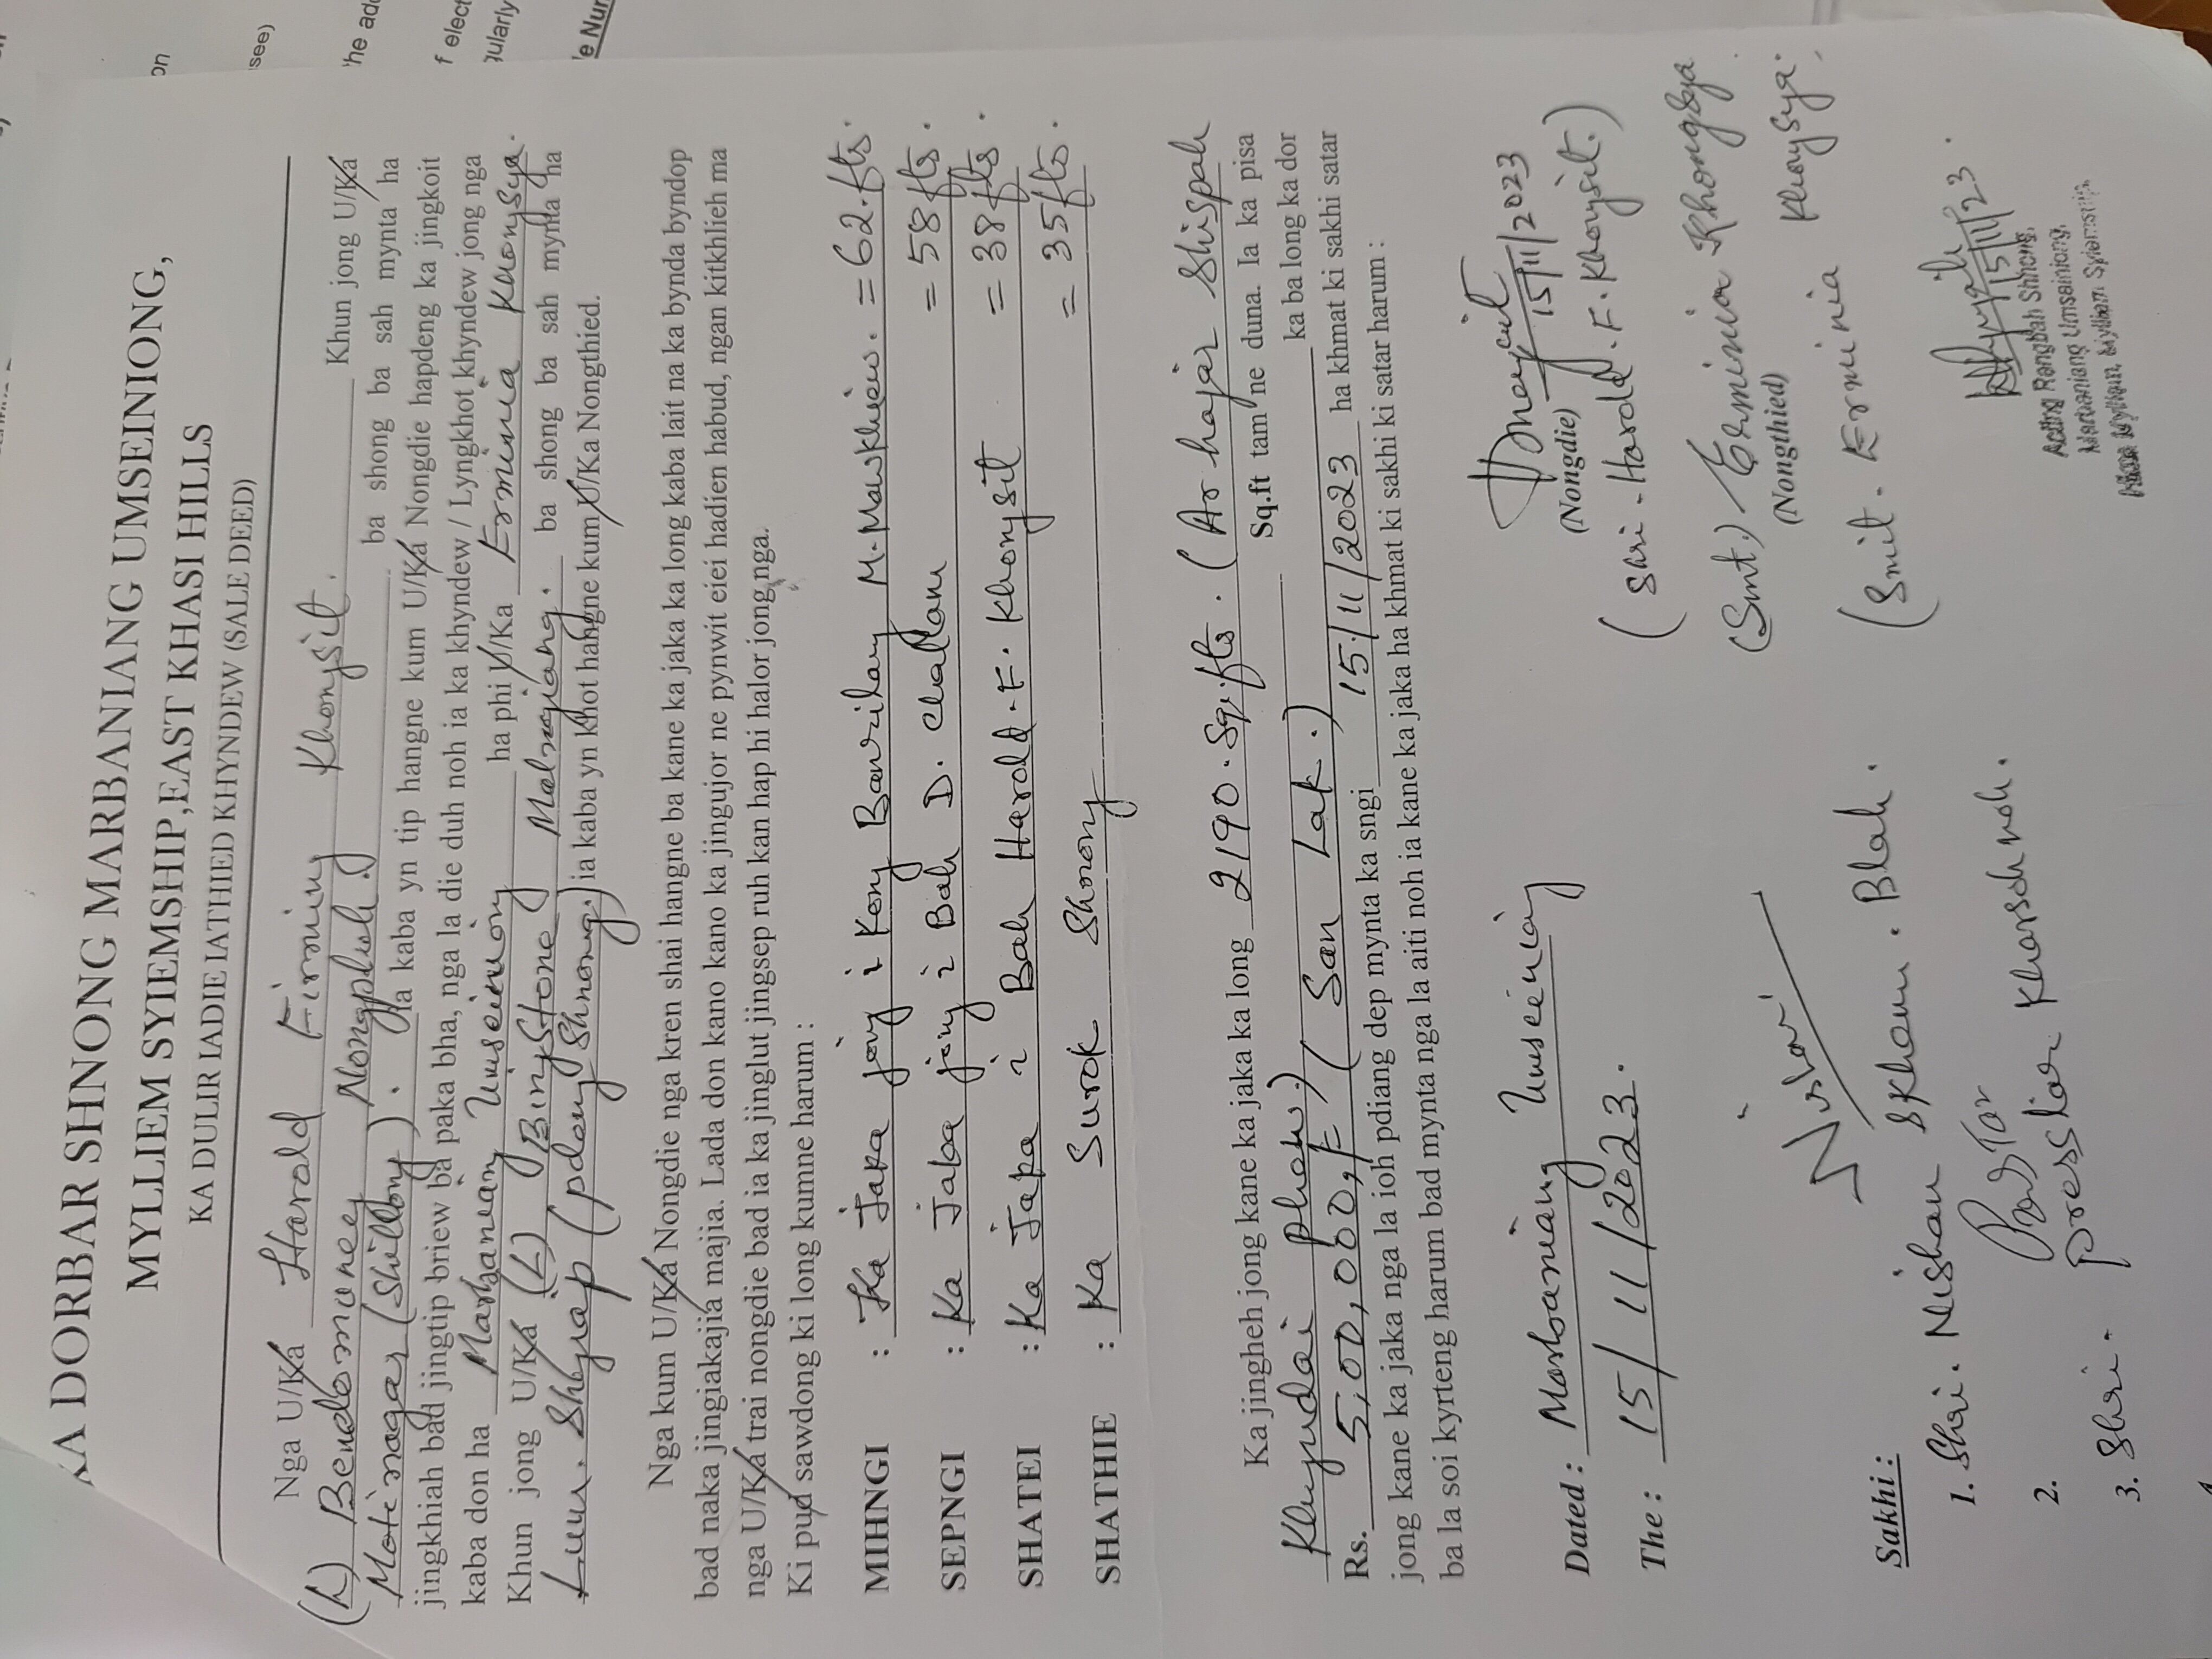 KA DORBAR SHNONG MARBANIANG UMSEINIONG,
MYLLIEM SYIEMSHIP, EAST KHASI HILLS
KA DULIR IADIE IATHIED KHYNDEW (SALE DEED)
Nga U/Ka Harold Firming Khongsit. Khun jong U/Ka
(L) Bendomuney Nongpluh. ba shong ba sah mynta ha
Motinagar (Shillong). la kaba yn tip hangne kum U/Ka Nongdie hapdeng ka jingkoit
jingkhiah bad jingtip briew ba paka bha, nga la die duh noh ia ka khyndew / Lyngkhot khyndew jong nga
kaba don ha Marbaniang Umseiniong ha phi U/Ka Erminia Khongsya.
Khun jong U/Ka (L) Bingstone Malngiang. ba shong ba sah mynta ha
Lum. Shyiap (pdengshnong) ia kaba yn khot hangne kum U/Ka Nongthied.
Nga kum U/Ka Nongdie nga kren shai hangne ba kane ka jaka ka long kaba lait na ka bynda byndop
bad naka jingiakajia majia. Lada don kano kano ka jingujor ne pynwit eiei hadien habud, ngan kitkhlieh ma
nga U/Ka trai nongdie bad ia ka jinglut jingsep ruh kan hap hi halor jong nga.
Ki pud sawdong ki long kumne harum :
MIHNGI : Ka Jaka jong i Kong Banrilang M. Mawkhiew. = 62.fts.
SEPNGI : Ka Jaka jong i Bah D. Challam = 58fts.
SHATEI : Ka Jaka i Bah Harold. F. Khongsit = 38fts.
SHATHIE : Ka Surok Shnong = 35fts.
Ka jingheh jong kane ka jaka ka long 2190.Sq.fts. (Ar hajar Shispah
Khyndai phew) Sq.ft tam ne duna. la ka pisa
Rs. 5,00,000/= (San Lak.) ka ba long ka dor
jong kane ka jaka nga la ioh pdiang dep mynta ka sngi 15/11/2023 ha khmat ki sakhi satar
ba la soi kyrteng harum bad mynta nga la aiti noh ia kane ka jaka ha khmat ki sakhi ki satar harum :
Dated : Marbaniang Umseiniong
The : 15/11/2023.
15/11/2023
(Nongdie)
(Shri. Harold. F. Khongsit.)
(Smt.) Erminia Khongsya
(Nongthied)
(Smit. Erminia Khongsya.
Sakhi :
1. Shri. Nishan Skhem. Blah.
2. Pastor
3. Shri. Presstar Kharsohnoh.
15/11/23.
Acting Rangbah Shnong,
Marbaniang Umseiniong,
Mylliem Syiemship